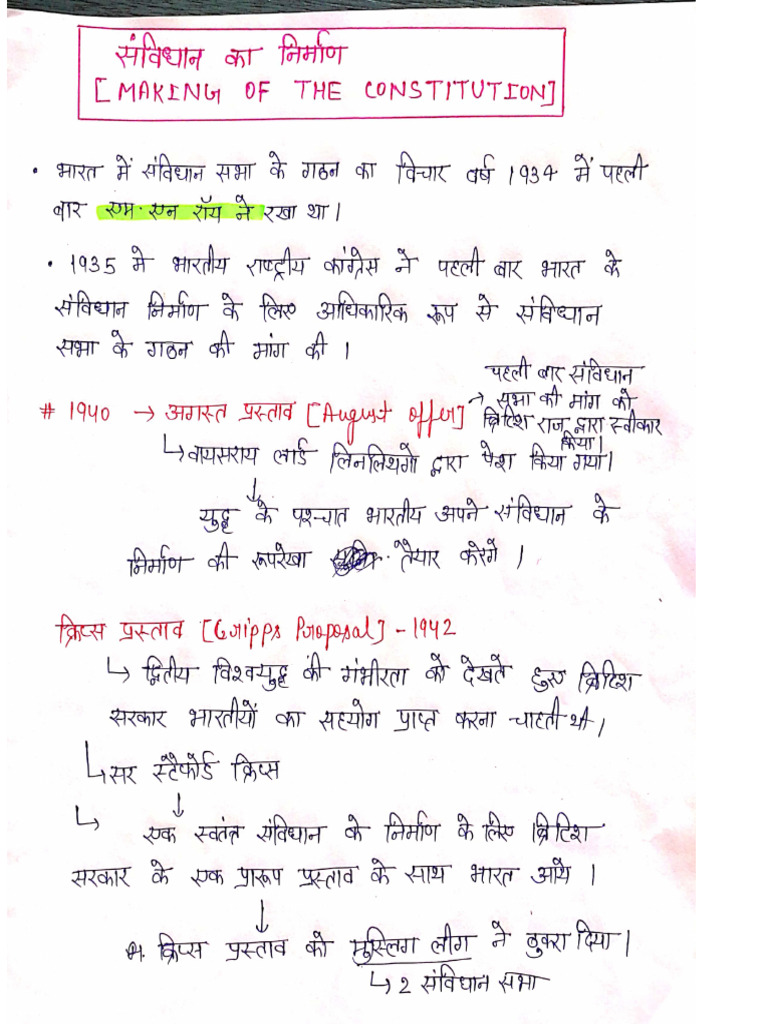 संविधान का निर्माण
[MAKING OF THE CONSTITUTION]
• भारत में संविधान सभा के गठन का विचार वर्ष 1934 में पहली
बार एम. एन रॉय ने रखा था।
• 1935 मे भारतीय राष्ट्रीय कांग्रेस ने पहली बार भारत के
संविधान निर्माण के लिए आधिकारिक रूप से संविधान
सभा के गठन की मांग की।
# 1940 → अगस्त प्रस्ताव [August offer]
→ पहली बार संविधान
सभा की मांग को
ब्रिटिश राज द्वारा स्वीकार
किया।
↳ वायसराय लार्ड लिनलिथगो द्वारा पेश किया गया।
↓
युद्ध के पश्चात भारतीय अपने संविधान के
निर्माण की रूपरेखा तैयार करेगें।
क्रिप्स प्रस्ताव [Cripps Proposal] - 1942
↳ द्वितीय विश्वयुद्ध की गंभीरता को देखते हुए ब्रिटिश
सरकार भारतीयों का सहयोग प्राप्त करना चाहती थी।
↳ सर स्टैफोर्ड क्रिप्स
↓
↳ एक स्वतंत्र संविधान के निर्माण के लिए ब्रिटिश
सरकार के एक प्रारूप प्रस्ताव के साथ भारत आये।
↓
क्रिप्स प्रस्ताव को मुस्लिग लीग ने ठुकरा दिया।
↳ 2 संविधान सभा